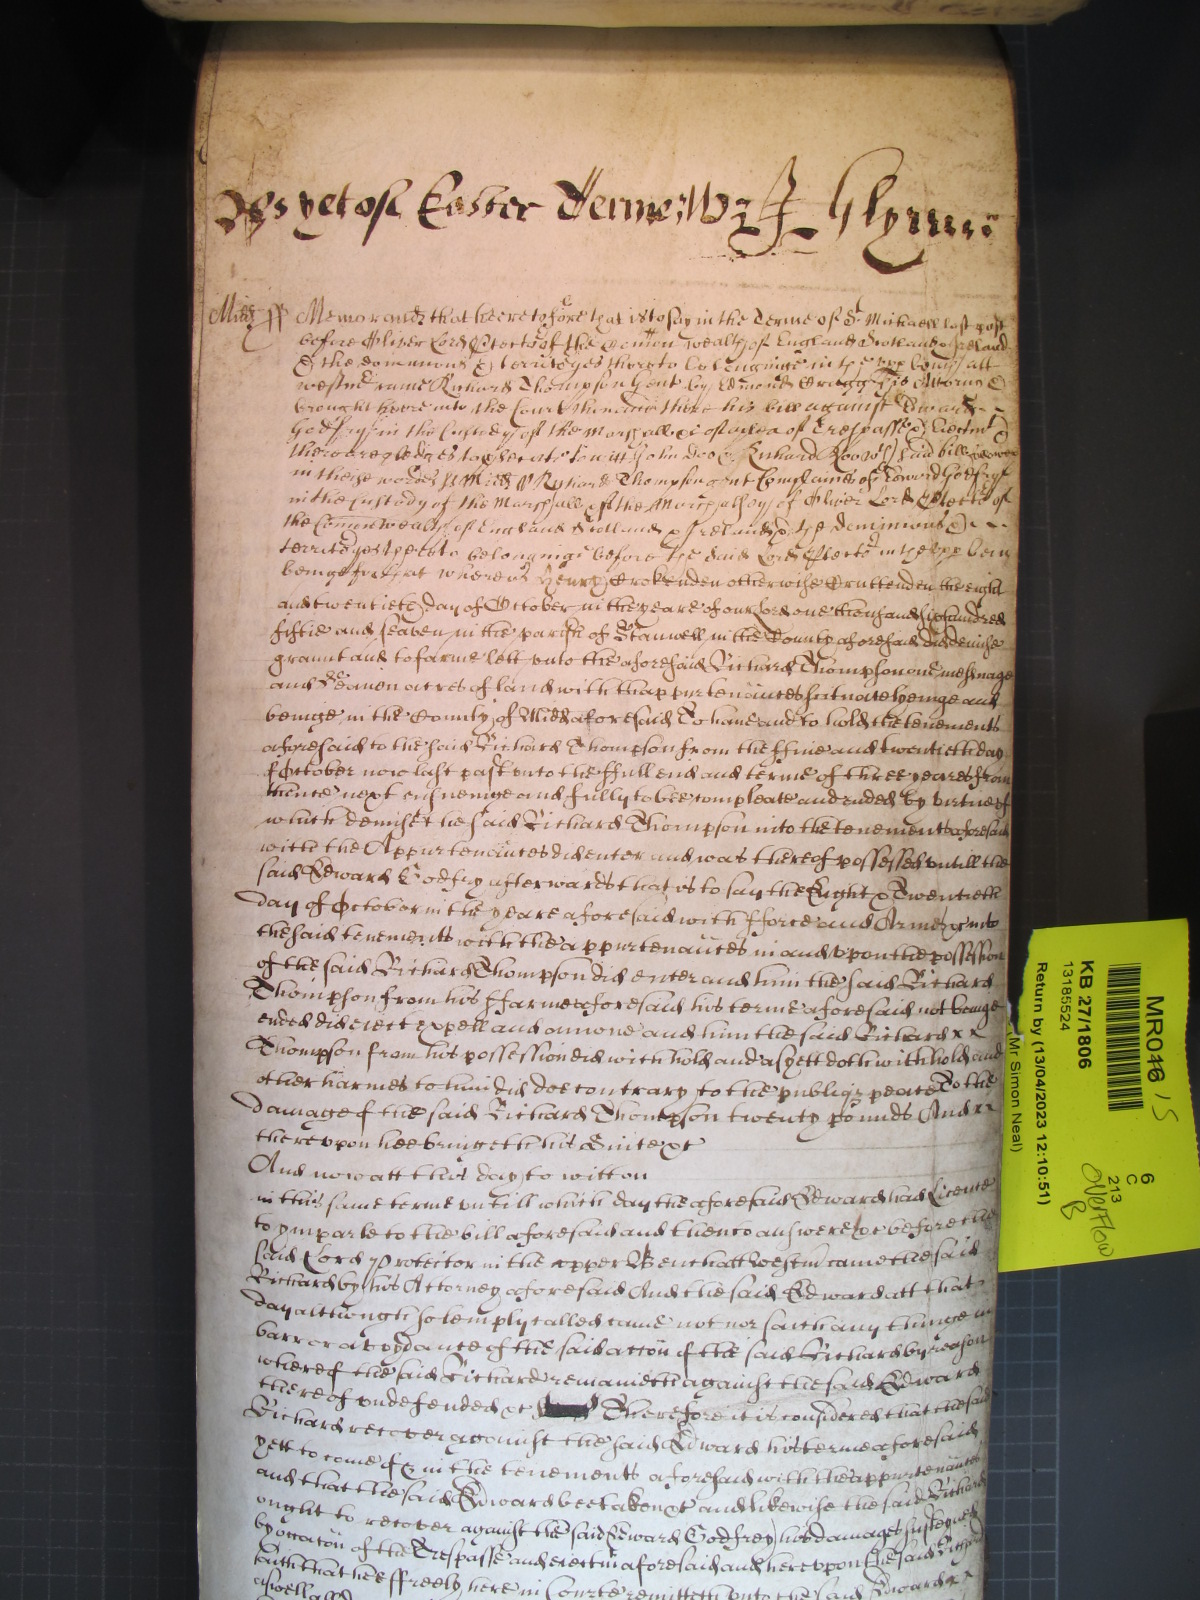 As yet of Easter Terme Wz Glynn
Midd ss Memorandz that heeretofore that is to say in the Terme of St Michaell last past
before Oliver Lord Protector of the Comon wealth of England Scotland & Ireland
& the dominions & territoryes thereto belonginge in the upp bench att
westmr came Richard Thompson Gent by Edmond his Attorny &
brought heere into the Court then and there his bill against Edward
Godfrey in the Custody of the Marshall &c of a plea of Trespasse & Eiectmt &
there are pledges to prosecute to witt John Doo & Richard Roo wch said bill
in these wordes ss Midd ss Richard Thompson gent Complaines of Edward Godfrey
in the Custody of the Marshall of the Marshalsey of Oliver Lord Protector of
the Comonwealth of England Scotland & Ireland & the dominions &
territoryes thereto belonginge before the said Lord Protector in the upp bench
beinge for that whereas Henry Crokenden otherwise Cruttenden the eight
and twentieth day of October in the yeare of our lord one thousand six hundred
fiftie and seaven in the parish of Stanwell in the County aforesaid did demise
graunt and to farme lett unto the aforesaid Richard Thompson one messuage
and Seaven acres of land with thappurtenances scituate lyeinge and
beinge in the County of Midd aforesaid To have and to hold the tenements
aforesaid to the said Richard Thompson from the ffive and twentieth day
of October now last past unto the ffull end and terme of three yeares from
thence next ensueinge and fully to bee compleate and ended by virtue of
which demise the said Richard Thompson into the tenements aforesaid
with the Appurtenances did enter and was thereof possessed untill the
said Edward Godfrey afterwards that is to say the Eight & Twentieth
day of October in the yeare aforesaid with fforce and Armes &c into
the said tenements with the appurtenances in and upon the possession
of the said Richard Thompson did enter and him the said Richard
Thompson from his ffarme aforesaid his terme aforesaid not beinge
ended did eiect expell and amove and him the said Richard x x
Thompson from his possession did with hold and as yett doth withhold and
other harmes to him did doe contrary to the publiqz peace To the
damage of the said Richard Thompson twenty pounds And x x
thereupon hee bringeth his Suite &c
And now att this day to witt on
in this same terme untill which day the aforesaid Edward had Licence
to ymparle to the bill aforesaid and then to answere &c before the
said Lord Protector in the upper Bench att Westm came the said
Richard by his Attorney aforesaid And the said Edward att that
day although solemply called came not nor saith any thinge in
barr or avoydance of the said accon of the said Richard by reason
whereof the said Richard remaineth against the said Edward
thereof undefended &c Therefore it is considered that the said
Richard recover against the said Edward his terme aforesaid
yett to come of & in the tenements aforesaid with the appurtenances
and that the said Edward bee taken &c and likewise the said Richard
ought to recover against the said Edward Godfrey his damages susteyned
by occacon of the Trespasse and eiectm aforesaid and hereupon the said Richard
saith that hee ffreely here in Courte remitteth unto the said Edward x x
aswell all
MR046 15
KB 27/1806
13185524
Return by (13/04/2023 12:10:51)
(Mr Simon Neal)
6
C
213
Overflow
B